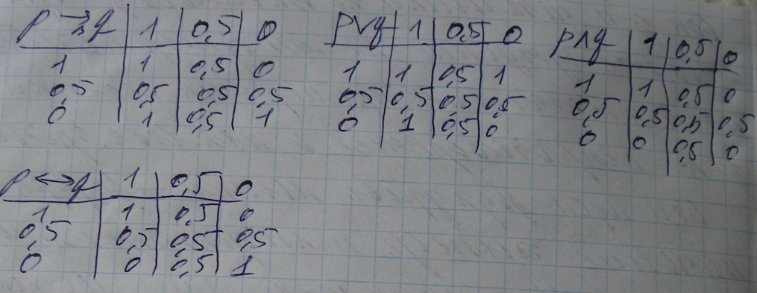 p→q | 1 | 0,5 | 0
1 | 1 | 0,5 | 0
0,5 | 0,5 | 0,5 | 0,5
0 | 1 | 0,5 | 1
p∨q | 1 | 0,5 | 0
1 | 1 | 0,5 | 1
0,5 | 0,5 | 0,5 | 0,5
0 | 1 | 0,5 | 0
p∧q | 1 | 0,5 | 0
1 | 1 | 0,5 | 0
0,5 | 0,5 | 0,5 | 0,5
0 | 0 | 0,5 | 0
p↔q | 1 | 0,5 | 0
1 | 1 | 0,5 | 0
0,5 | 0,5 | 0,5 | 0,5
0 | 0 | 0,5 | 1